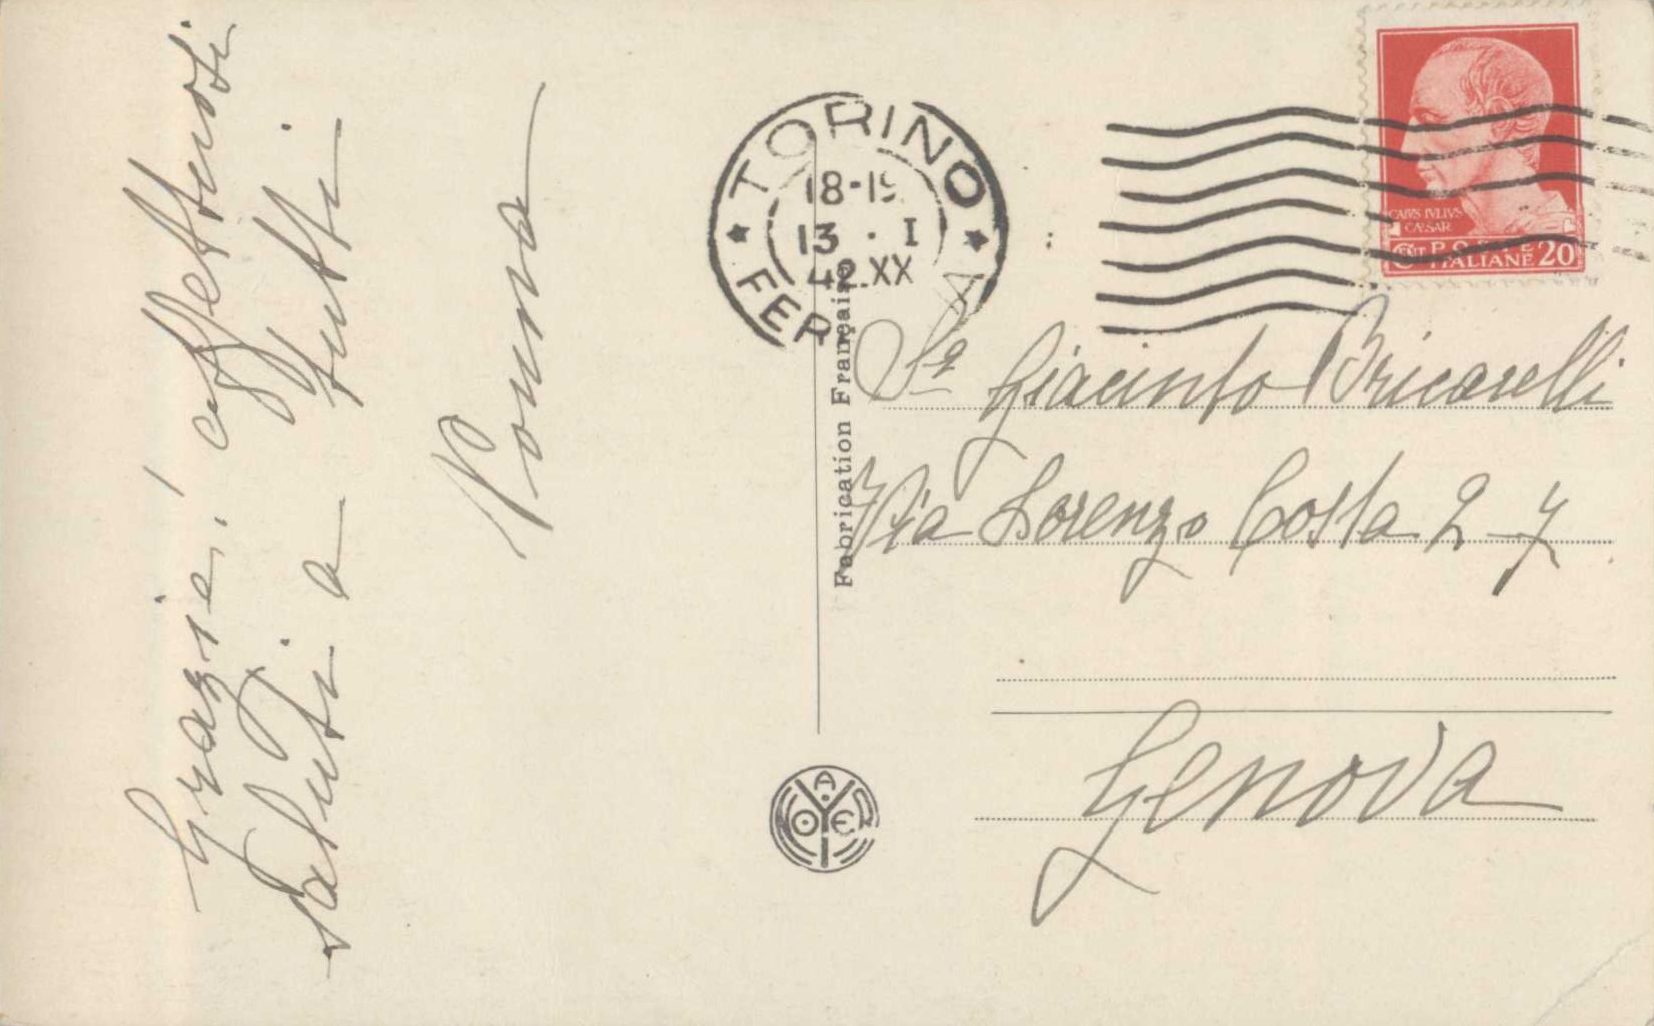 Grazie! affettuosi
saluti a tutti
TORINO
18-19
13 · I
42.XX
FER
CAIVS IVLIVS
CÆSAR
CENT. POSTE
ITALIANE 20
Fabrication Française
Giacinto Bricarelli
Via Lorenzo Costa 2-7
Genova